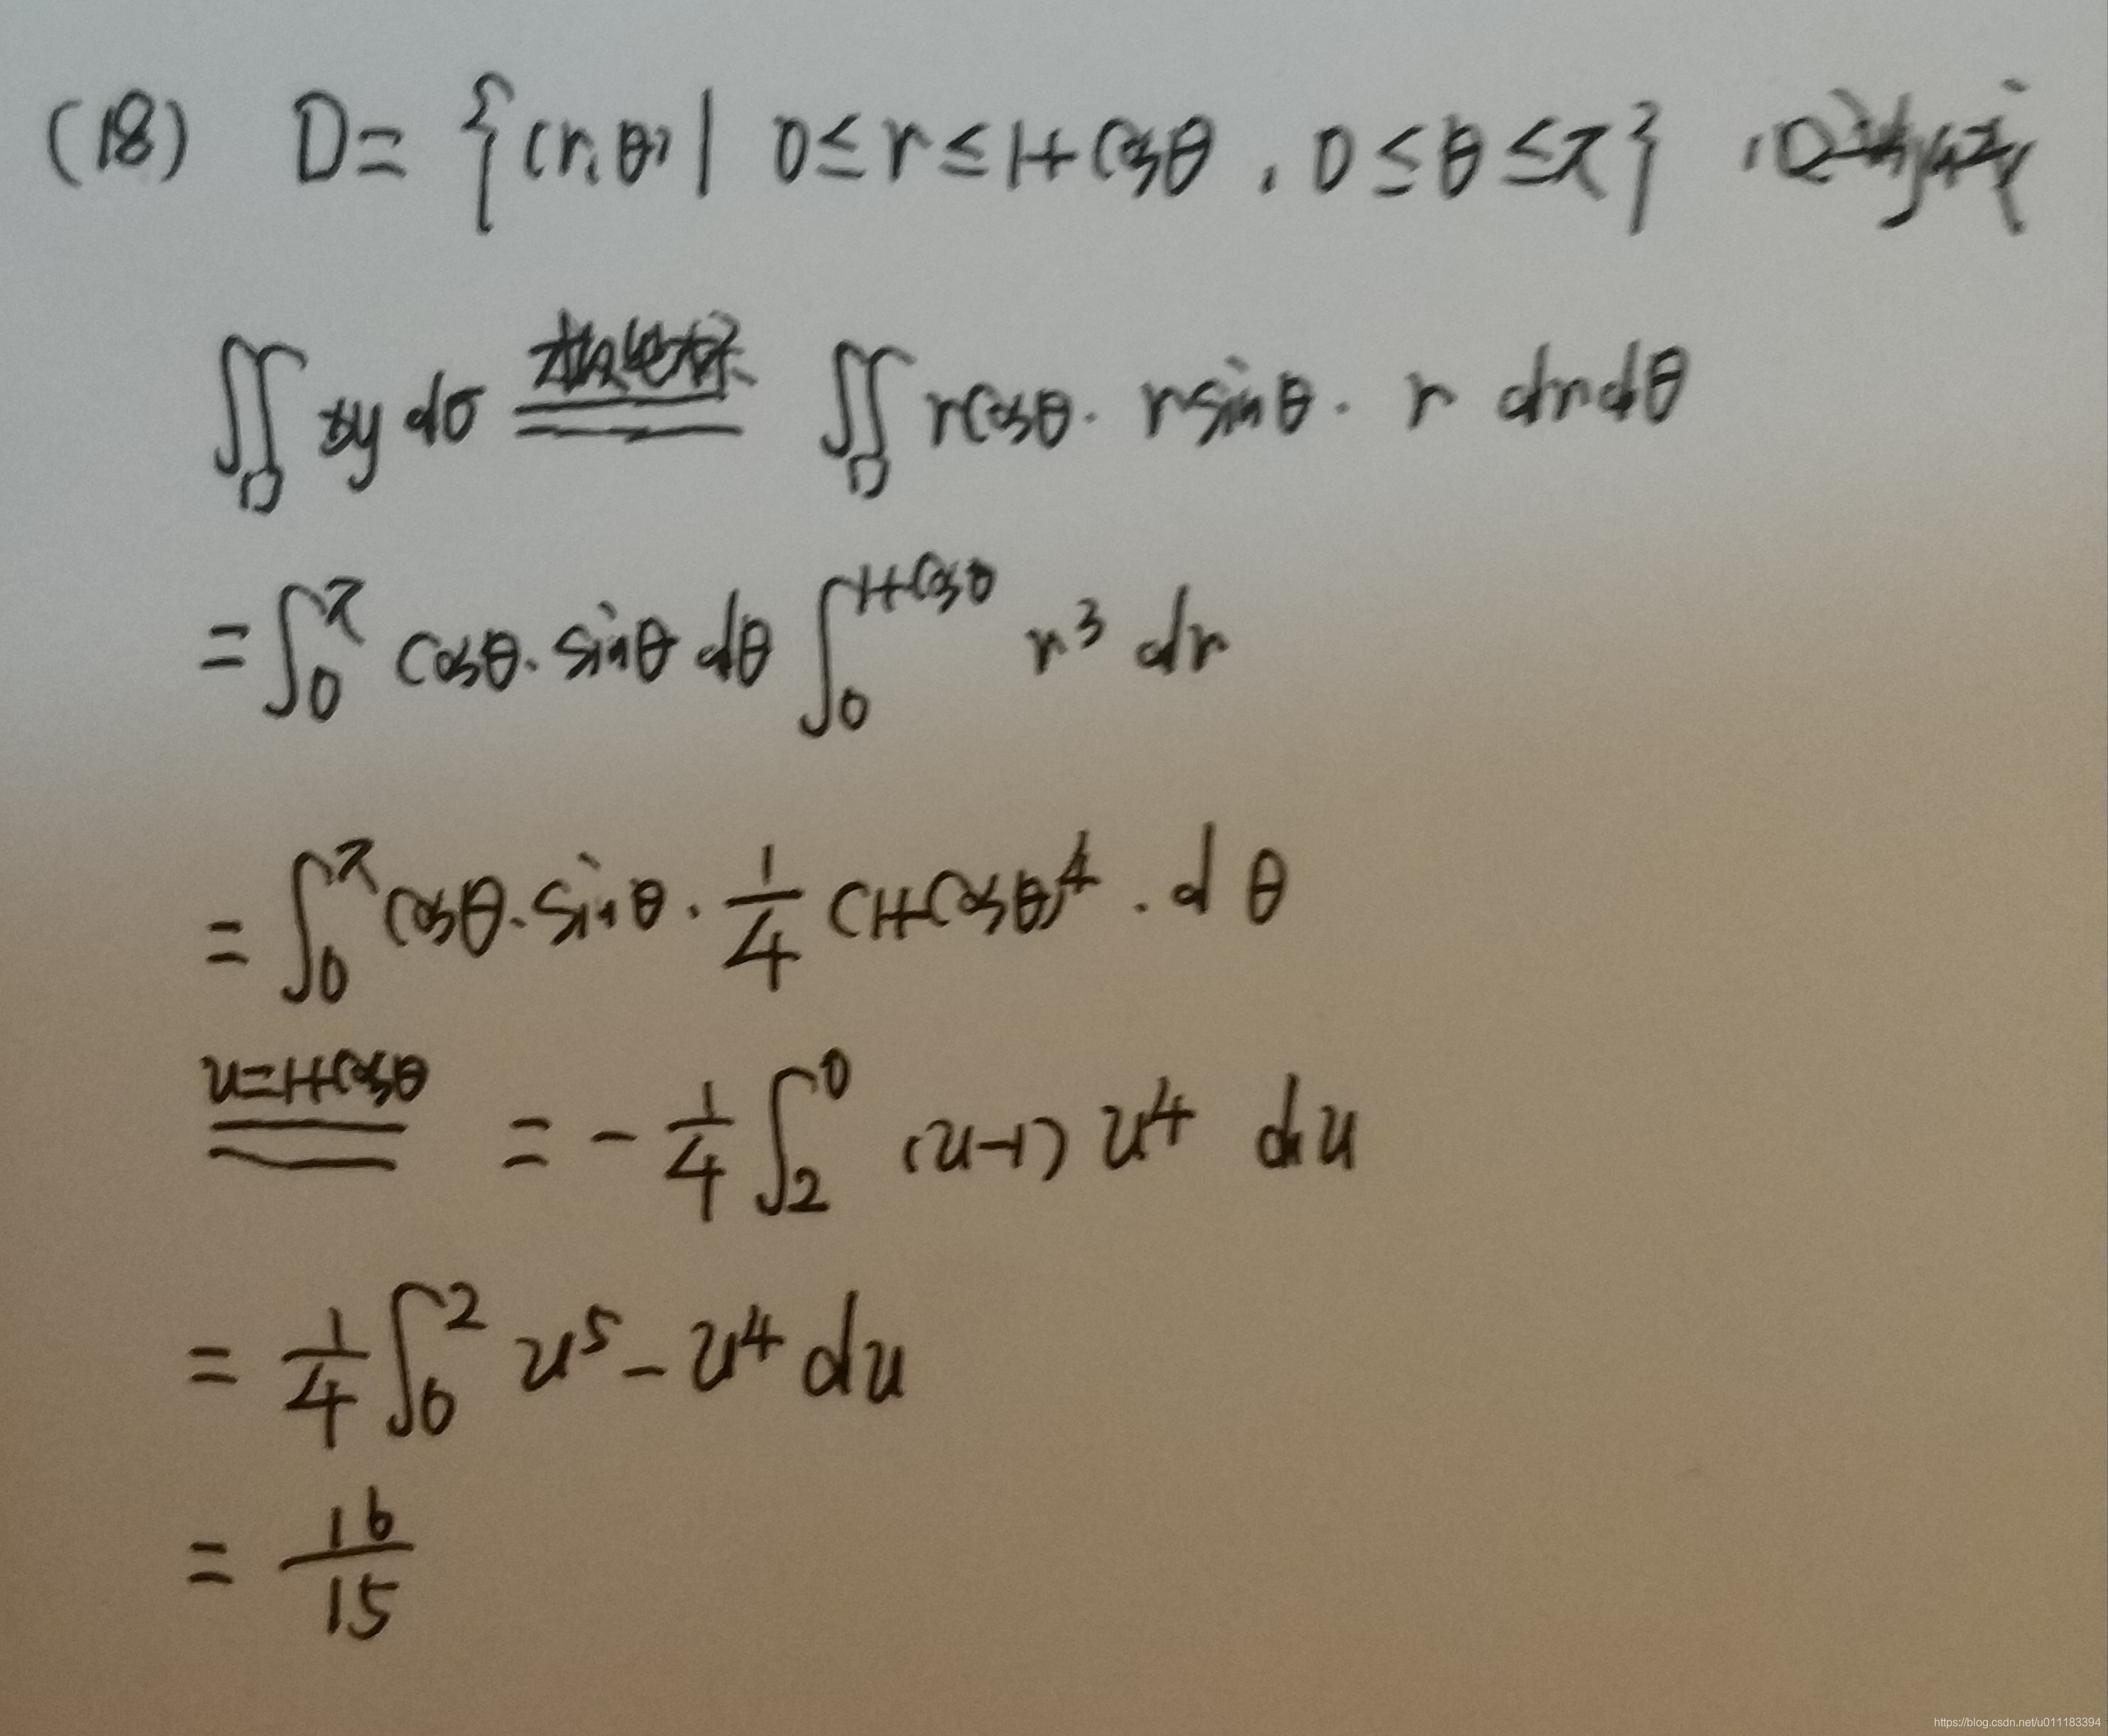 (18) D = {(r,θ) | 0≤r≤1+cosθ, 0≤θ≤π}
∬_D xy dσ 极坐标 ∬_D rcosθ · rsinθ · r drdθ
= ∫_0^π cosθ · sinθ dθ ∫_0^{1+cosθ} r³ dr
= ∫_0^π cosθ · sinθ · 1/4 (1+cosθ)⁴ · dθ
u=1+cosθ = -1/4 ∫_2^0 (u-1) u⁴ du
= 1/4 ∫_0^2 u⁵ - u⁴ du
= 16/15
https://blog.csdn.net/u011183394